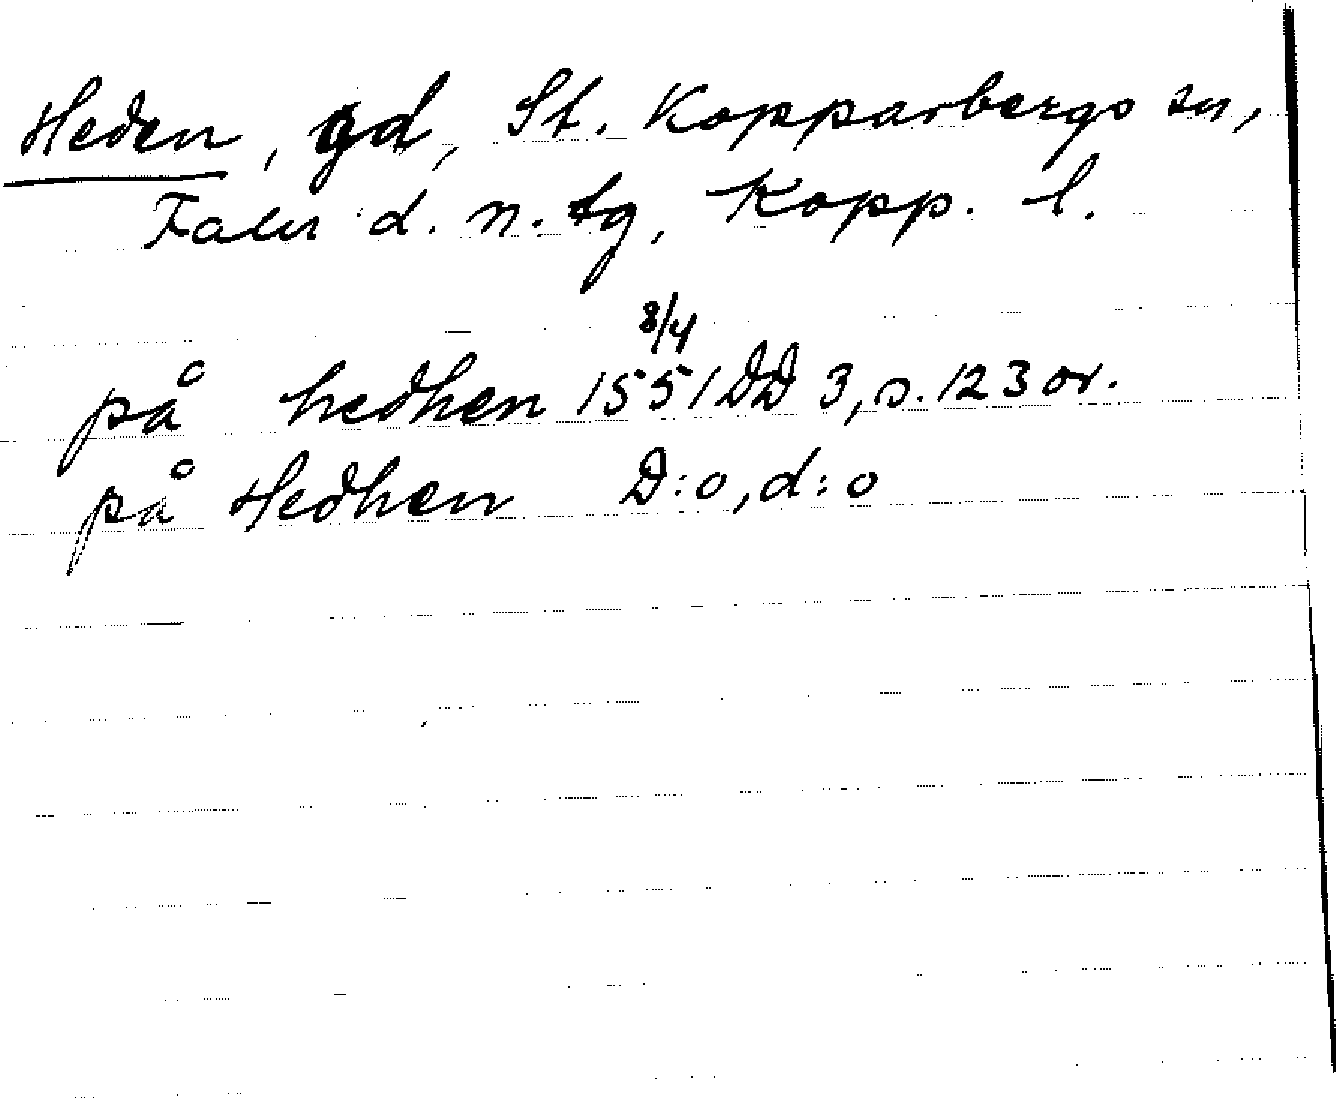 Heden, gd, St. Kopparbergs sn,
Falu d. n. tg, Kopp. l.
på hedhen 1551 8/4 DD 3, s. 123 or.
på Hedhen D:o, d:o